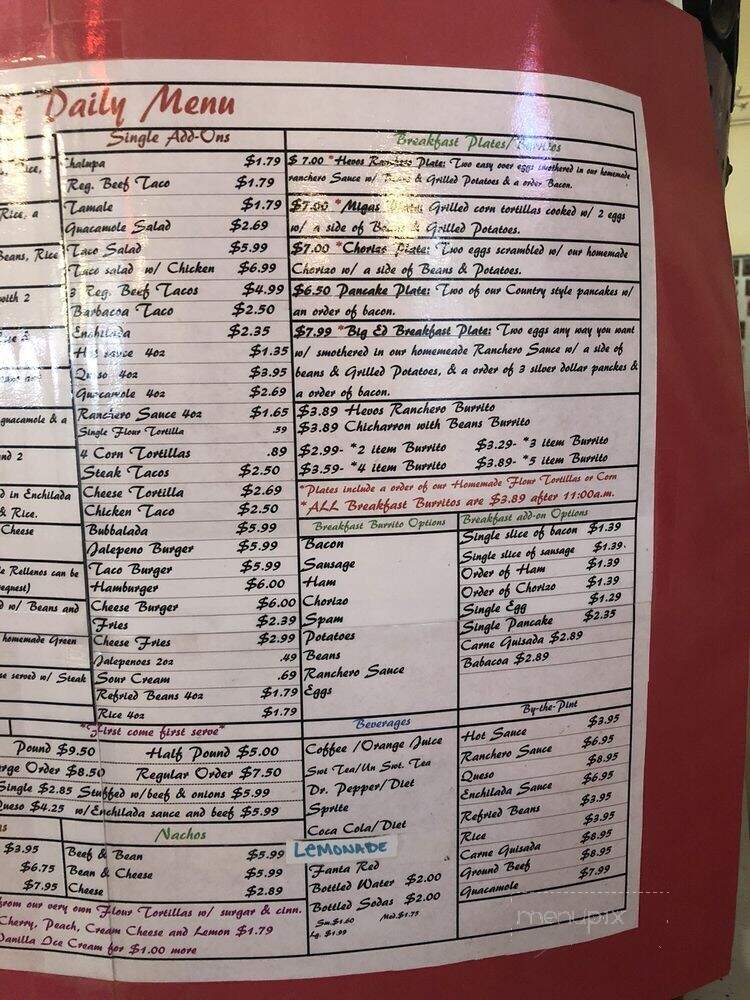 's Daily Menu
Single Add-Ons
Chalupa $1.79
Reg. Beef Taco $1.79
Tamale $1.79
Guacamole Salad $2.69
Taco Salad $5.99
Taco salad w/ Chicken $6.99
3 Reg. Beef Tacos $4.99
Barbacoa Taco $2.50
Enchilada $2.35
Hot sauce 4oz $1.35
Queso 4oz $3.95
Guacamole 4oz $2.69
Ranchero Sauce 4oz $1.65
Single Flour Tortilla .59
4 Corn Tortillas .89
Steak Tacos $2.50
Cheese Tortilla $2.69
Chicken Taco $2.50
Bubbalada $5.99
Jalepeno Burger $5.99
Taco Burger $5.99
Hamburger $6.00
Cheese Burger $6.00
Fries $2.39
Cheese Fries $2.99
Jalepenoes 2oz .49
Sour Cream .69
Refried Beans 4oz $1.79
Rice 4oz $1.79
Breakfast Plates/Burritos
$7.00 *Hevos Ranchero Plate: Two easy over eggs smothered in our homemade
ranchero Sauce w/ Beans & Grilled Potatoes & a order Bacon.
$7.00 *Migas Plate: Grilled corn tortillas cooked w/ 2 eggs
w/ a side of Beans & Grilled Potatoes.
$7.00 *Chorizo Plate: Two eggs scrambled w/ our homemade
Chorizo w/ a side of Beans & Potatoes.
$6.50 Pancake Plate: Two of our Country style pancakes w/
an order of bacon.
$7.99 *Big Ed Breakfast Plate: Two eggs any way you want
w/ smothered in our homemeade Ranchero Sauce w/ a side of
beans & Grilled Potatoes, & a order of 3 silver dollar panckes &
a order of bacon.
$3.89 Hevos Ranchero Burrito
$3.89 Chicharron with Beans Burrito
$2.99- *2 item Burrito $3.29- *3 item Burrito
$3.59- *4 item Burrito $3.89- *5 item Burrito
*Plates include a order of our Homemade Flour Tortillas or Corn
*ALL Breakfast Burritos are $3.89 after 11:00a.m.
Breakfast Burrito Options
Bacon
Sausage
Ham
Chorizo
Spam
Potatoes
Beans
Ranchero Sauce
Eggs
Breakfast add-on Options
Single slice of bacon $1.39
Single slice of sausage $1.39.
Order of Ham $1.39
Order of Chorizo $1.39
Single Egg $1.29
Single Pancake $2.35
Carne Guisada $2.89
Babacoa $2.89
Beverages
Coffee /Orange Juice
Swt Tea/Un Swt. Tea
Dr. Pepper/Diet
Sprite
Coca Cola/Diet
LEMONADE
Fanta Red
Bottled Water $2.00
Bottled Sodas $2.00
Sm.$1.60 Med.$1.75
Lg. $1.99
By-the-Pint
Hot Sauce $3.95
Ranchero Sauce $6.95
Queso $8.95
Enchilada Sauce $6.95
Refried Beans $3.95
Rice $3.95
Carne Guisada $8.95
Ground Beef $8.95
Guacamole $7.99
Rice, a
Beans, Rice
with 2
guacamole & a
and 2
in Enchilada
& Rice.
Cheese
Rellenos can be
request)
w/ Beans and
homemade Green
served w/ Steak
*First come first serve*
Pound $9.50 Half Pound $5.00
Order $8.50 Regular Order $7.50
Single $2.85 Stuffed w/beef & onions $5.99
Queso $4.25 w/Enchilada sauce and beef $5.99
$3.95
$6.75
$7.95
Nachos
Beef & Bean $5.99
Bean & Cheese $5.99
Cheese $2.89
from our very own Flour Tortillas w/ surgar & cinn.
Cherry, Peach, Cream Cheese and Lemon $1.79
Vanilla Ice Cream for $1.00 more
menupix